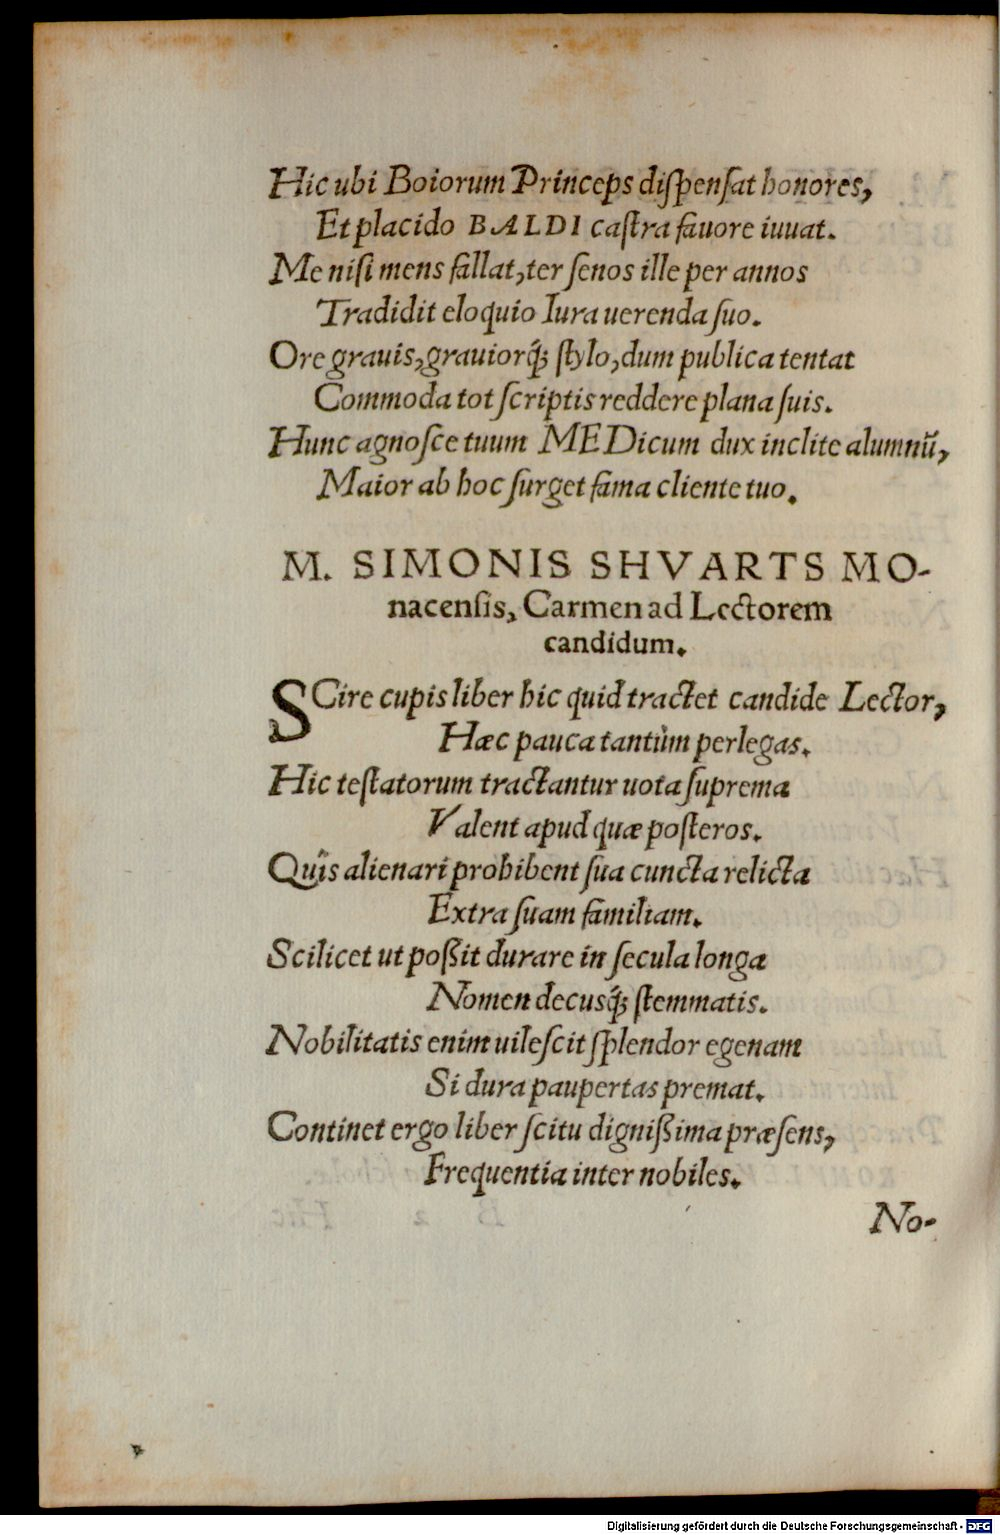 Hic ubi Boiorum Princeps diſpenſat honores,
Et placido BALDI caſtra fauore iuuat.
Me niſi mens fallat, ter ſenos ille per annos
Tradidit eloquio Iura uerenda ſuo.
Ore grauis, grauiorq́; ſtylo, dum publica tentat
Commoda tot ſcriptis reddere plana ſuis.
Hunc agnoſce tuum MEDicum dux inclite alumnū,
Maior ab hoc ſurget fama cliente tuo.
M. SIMONIS SHVARTS MO-
nacenſis, Carmen ad Lectorem
candidum.
SCire cupis liber hic quid tractet candide Lector,
Hæc pauca tantùm perlegas.
Hic teſtatorum tractantur uota ſuprema
Valent apud quæ poſteros.
Quîs alienari prohibent ſua cuncta relicta
Extra ſuam familiam.
Scilicet ut poßit durare in ſecula longa
Nomen decusq́; ſtemmatis.
Nobilitatis enim uileſcit ſplendor egenam
Si dura paupertas premat.
Continet ergo liber ſcitu dignißima præſens,
Frequentia inter nobiles.
No-
Digitalisierung gefördert durch die Deutsche Forschungsgemeinschaft - DFG